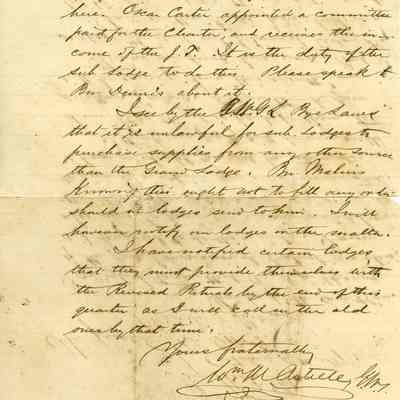 here. Oscar Carter appointed a committee
paid for the Charter, and receives the in-
come of the J.T. It is the duty of the
sub Lodge to do this. Please speak to
Bro Dennis about it.
I see by the R.W.G.L. Bye Laws
that it is unlawful for sub. Lodges to
purchase supplies from any other source
than the Grand Lodge. Bro Malins
knowing this ought not to fill any orders
should lodges send to him. I will
however notify our lodges on the matter.
I have notified certain lodges
that they must provide themselves with
the Revised Rituals by the end of this
quarter as I will call in the old
ones by that time.
Yours fraternally
Wm M Artrell G.W.S.